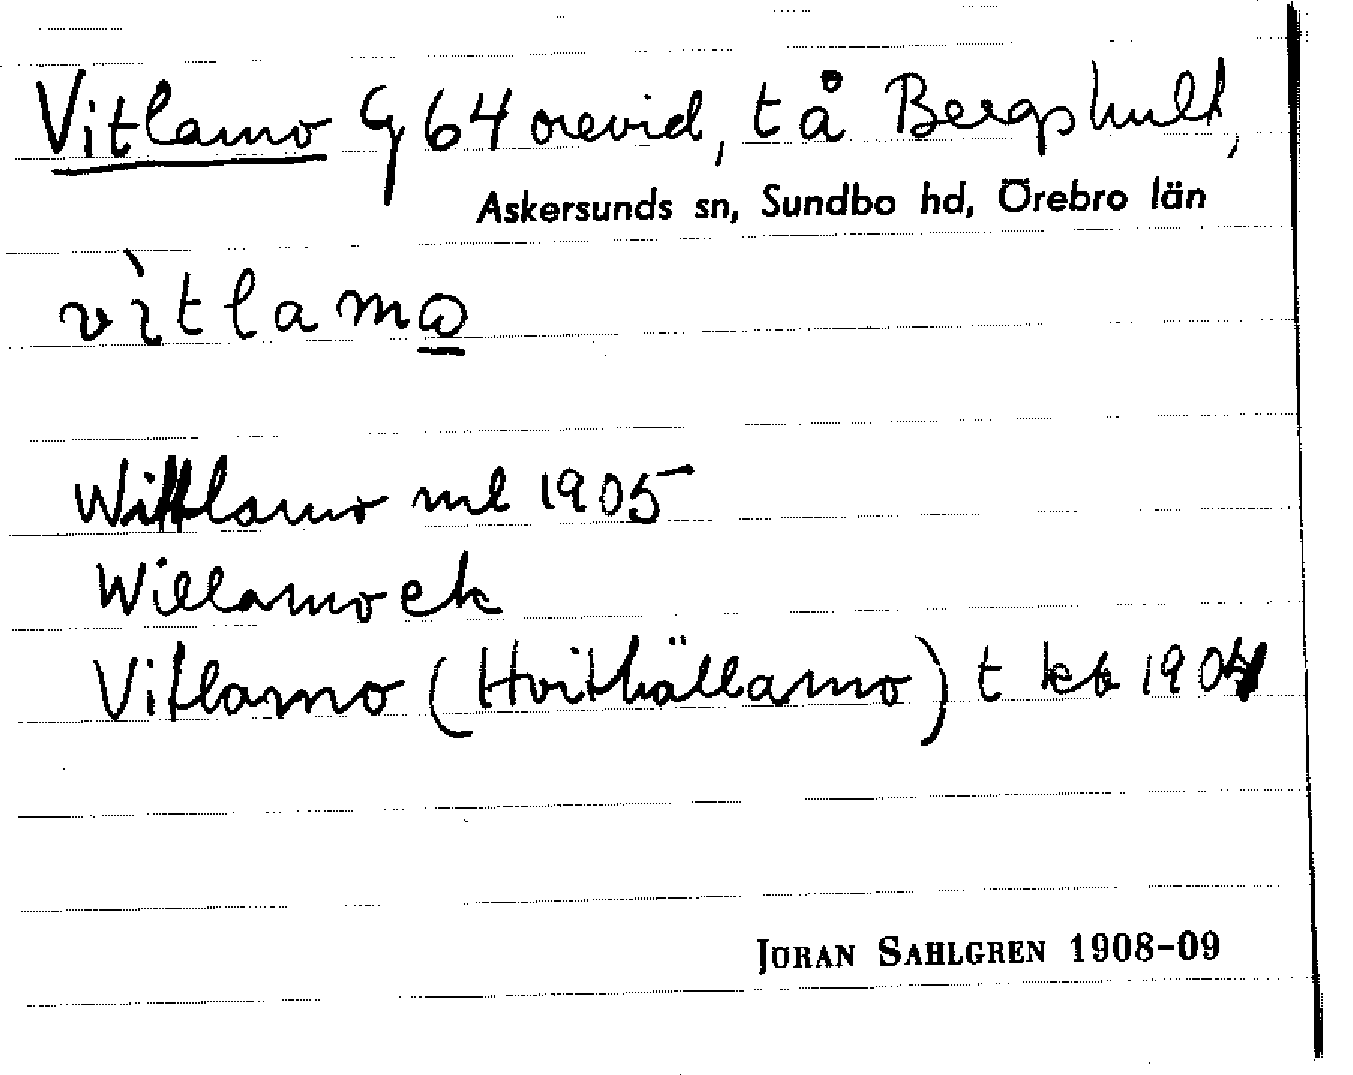 Vitlamo G 64 orevid, t å Bergshult,
Askersunds sn, Sundbo hd, Örebro län
vìtlamω
Wittlamo ml 1905
Willamo ek
Vitlamo (Hvithällamo) t kb 1904
JÖRAN SAHLGREN 1908-09